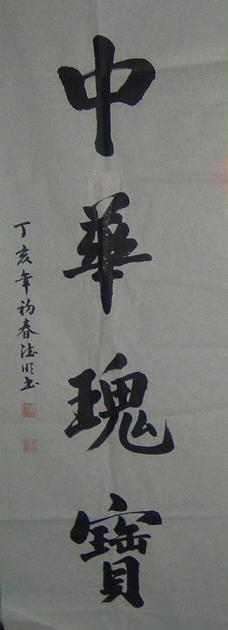 中華瑰寶
丁亥年初春德明书